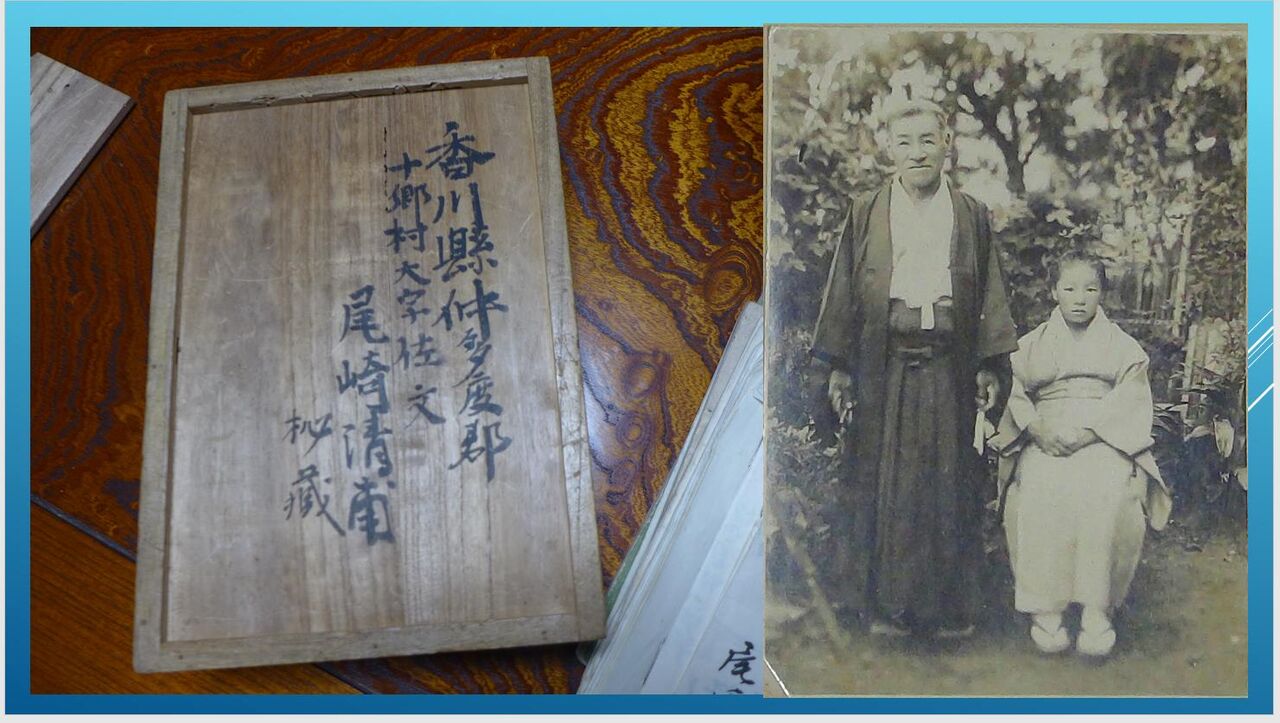 香川縣仲多度郡
十郷村大字佐文
尾崎清甫
秘藏
尾